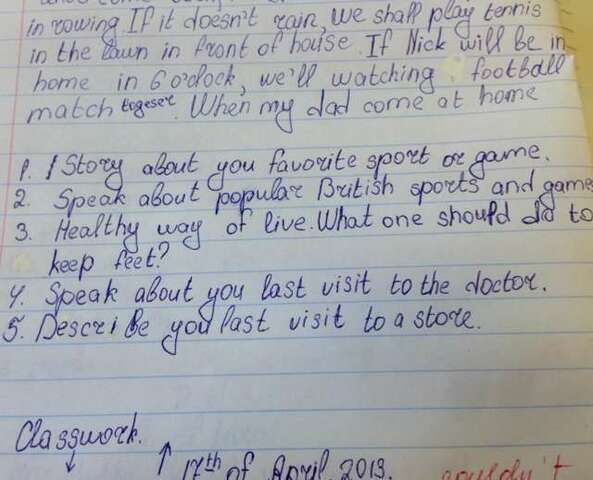 in rowing If it doesn't rain, we shall play tennis
in the lawn in front of house. If Nick will be in
home in 6 o'clock, we'll watching football
match togeser. When my dad come at home
1. 1 Story about you favorite sport or game.
2. Speak about popular British sports and game
3. Healthy way of live. What one should do to
keep feet?
4. Speak about you last visit to the doctor.
5. Describe you last visit to a store.
Classwork.
17th of April 2019. couldn't